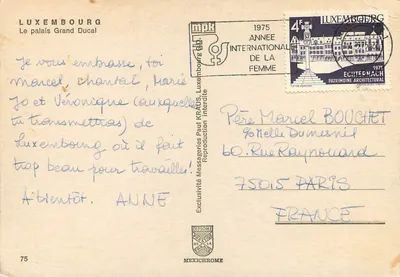 LUXEMBOURG
Le palais Grand Ducal
Je vous embrasse, toi
Marcel, chantal, Marie
Jo et Véronique (auxquelles
tu transmettras) de
Luxembourg où il fait
trop beau pour travailler!
A bientôt. ANNE
75
Exclusivité Messageries Paul KRAUS, Luxembourg
Reproduction interdite
MEXICHROME
1975
ANNEE
INTERNATIONALE
DE LA
FEMME
4F
LUXEMBOURG
1975
ECHTERNACH
PATRIMOINE ARCHITECTURAL
Père Marcel BOUCHET
Melle Dumesnil
60. Rue Raynouard
75015 PARIS
FRANCE